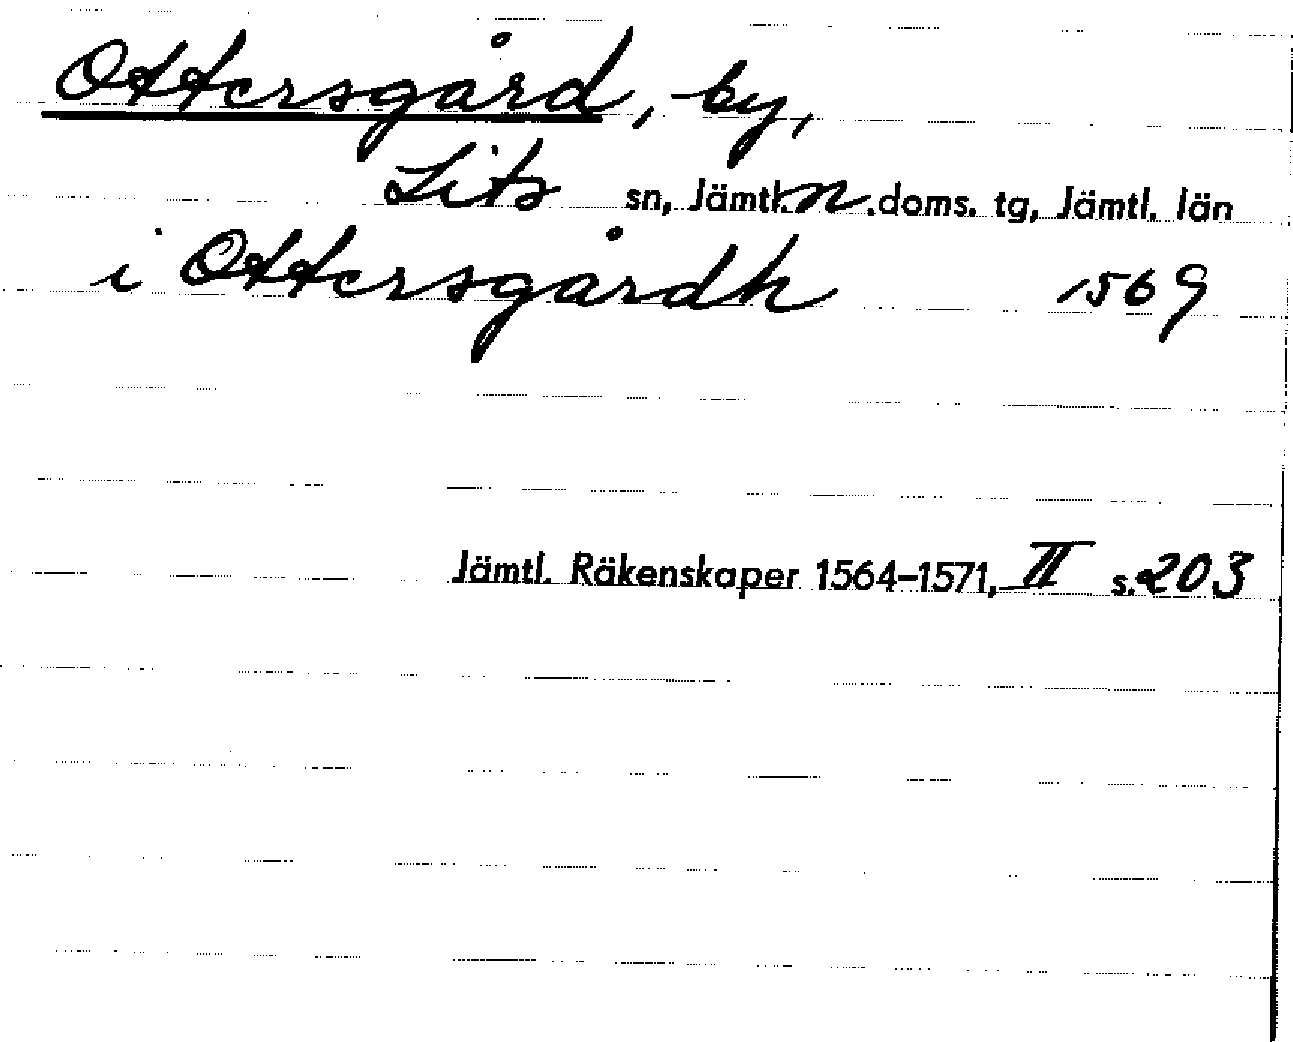 Ottersgård, by,
Lits sn, Jämtl. n. doms. tg, Jämtl. län
i Ottersgårdh 1569
Jämtl. Räkenskaper 1564-1571, II s. 203